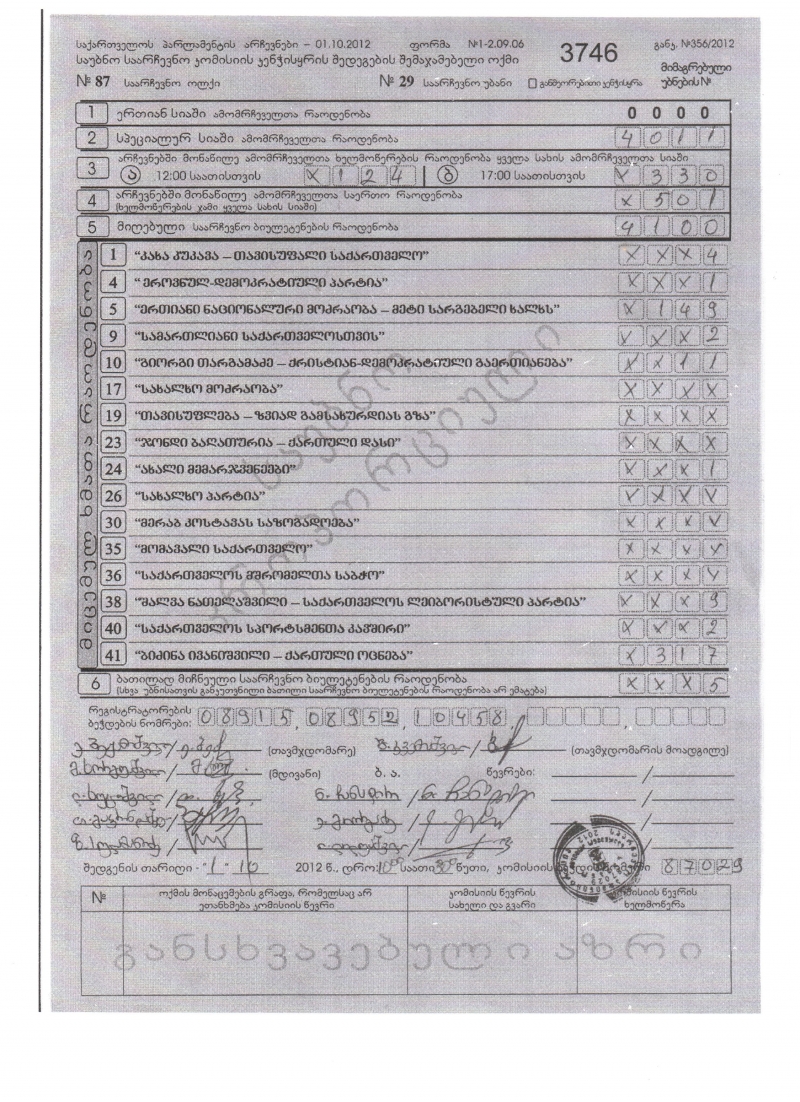 საქართველოს პარლამენტის არჩევნები – 01.10.2012 ფორმა №1-2.09.06 3746 განკ. №356/2012
საუბნო საარჩევნო კომისიის კენჭისყრის შედეგების შემაჯამებელი ოქმი მიმაგრებული
№ 87 საარჩევნო ოლქი № 29 საარჩევნო უბანი განმეორებითი კენჭისყრა უბნების №
1 ერთიან სიაში ამომრჩეველთა რაოდენობა 0 0 0 0
2 სპეციალურ სიაში ამომრჩეველთა რაოდენობა 4 0 1 1
3 არჩევნებში მონაწილე ამომრჩეველთა ხელმოწერების რაოდენობა ყველა სახის ამომრჩეველთა სიაში
ა 12:00 საათისთვის X 1 2 4 ბ 17:00 საათისთვის X 3 3 0
4 არჩევნებში მონაწილე ამომრჩეველთა საერთო რაოდენობა X 5 0 1
(ხელმოწერების ჯამი ყველა სახის სიაში)
5 მიღებული საარჩევნო ბიულეტენების რაოდენობა 4 1 0 0
მიცემულ ხმათა რაოდენობა
1 "კახა კუკავა – თავისუფალი საქართველო" X X X 4
4 "ეროვნულ-დემოკრატიული პარტია" X X X 1
5 "ერთიანი ნაციონალური მოძრაობა – მეტი სარგებელი ხალხს" X 1 4 9
9 "სამართლიანი საქართველოსთვის" X X X 2
10 "გიორგი თარგამაძე – ქრისტიან-დემოკრატიული გაერთიანება" X X 1 1
17 "სახალხო მოძრაობა" X X X X
19 "თავისუფლება – ზვიად გამსახურდიას გზა" X X X X
23 "ჯონდი ბაღათურია – ქართული დასი" X X X X
24 "ახალი მემარჯვენეები" X X X 1
26 "სახალხო პარტია" X X X X
30 "მერაბ კოსტავას საზოგადოება" X X X X
35 "მომავალი საქართველო" X X X X
36 "საქართველოს მშრომელთა საბჭო" X X X X
38 "შალვა ნათელაშვილი – საქართველოს ლეიბორისტული პარტია" X X X 9
40 "საქართველოს სპორტსმენთა კავშირი" X X X 2
41 "ბიძინა ივანიშვილი – ქართული ოცნება" X 3 1 7
6 ბათილად მიჩნეული საარჩევნო ბიულეტენების რაოდენობა X X X 5
(სხვა უბნისათვის განკუთვნილი ბათილი საარჩევნო ბიულეტენების რაოდენობა არ ემატება)
საუბნო
პროპორციული
რეგისტრატორების
ბეჭდების ნომრები: 0 8 9 1 5, 0 8 9 5 2, 1 0 4 5 8,
(თავმჯდომარე) (თავმჯდომარის მოადგილე)
(მდივანი) ბ. ა. წევრები:
შედგენის თარიღი - "1" 10 2012 წ., დრო: 10 საათი 30 წუთი, კომისიის ბეჭდის ნომერი 8 7 0 2 9
№ ოქმის მონაცემების გრაფა, რომელსაც არ ეთანხმება კომისიის წევრი კომისიის წევრის სახელი და გვარი კომისიის წევრის ხელმოწერა
განსხვავებული აზრი